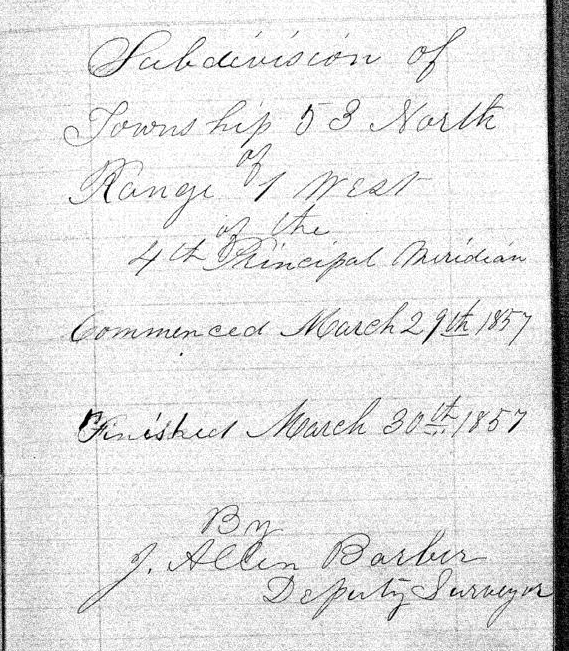 Subdivision of
Township 53 North
of
Range 1 West
of the
4th Principal Meridian
Commenced March 29th 1857
Finished March 30th 1857
By
J. Allen Barber
Deputy Surveyor